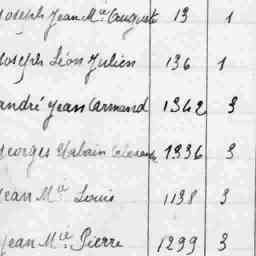 Joseph Jean Mie Auguste 13 1
Joseph Léon Julien 136 1
André Jean Armand 1362 3
Georges 1336 3
Jean Mie Louis 1138 3
Jean Mie Pierre 1299 3